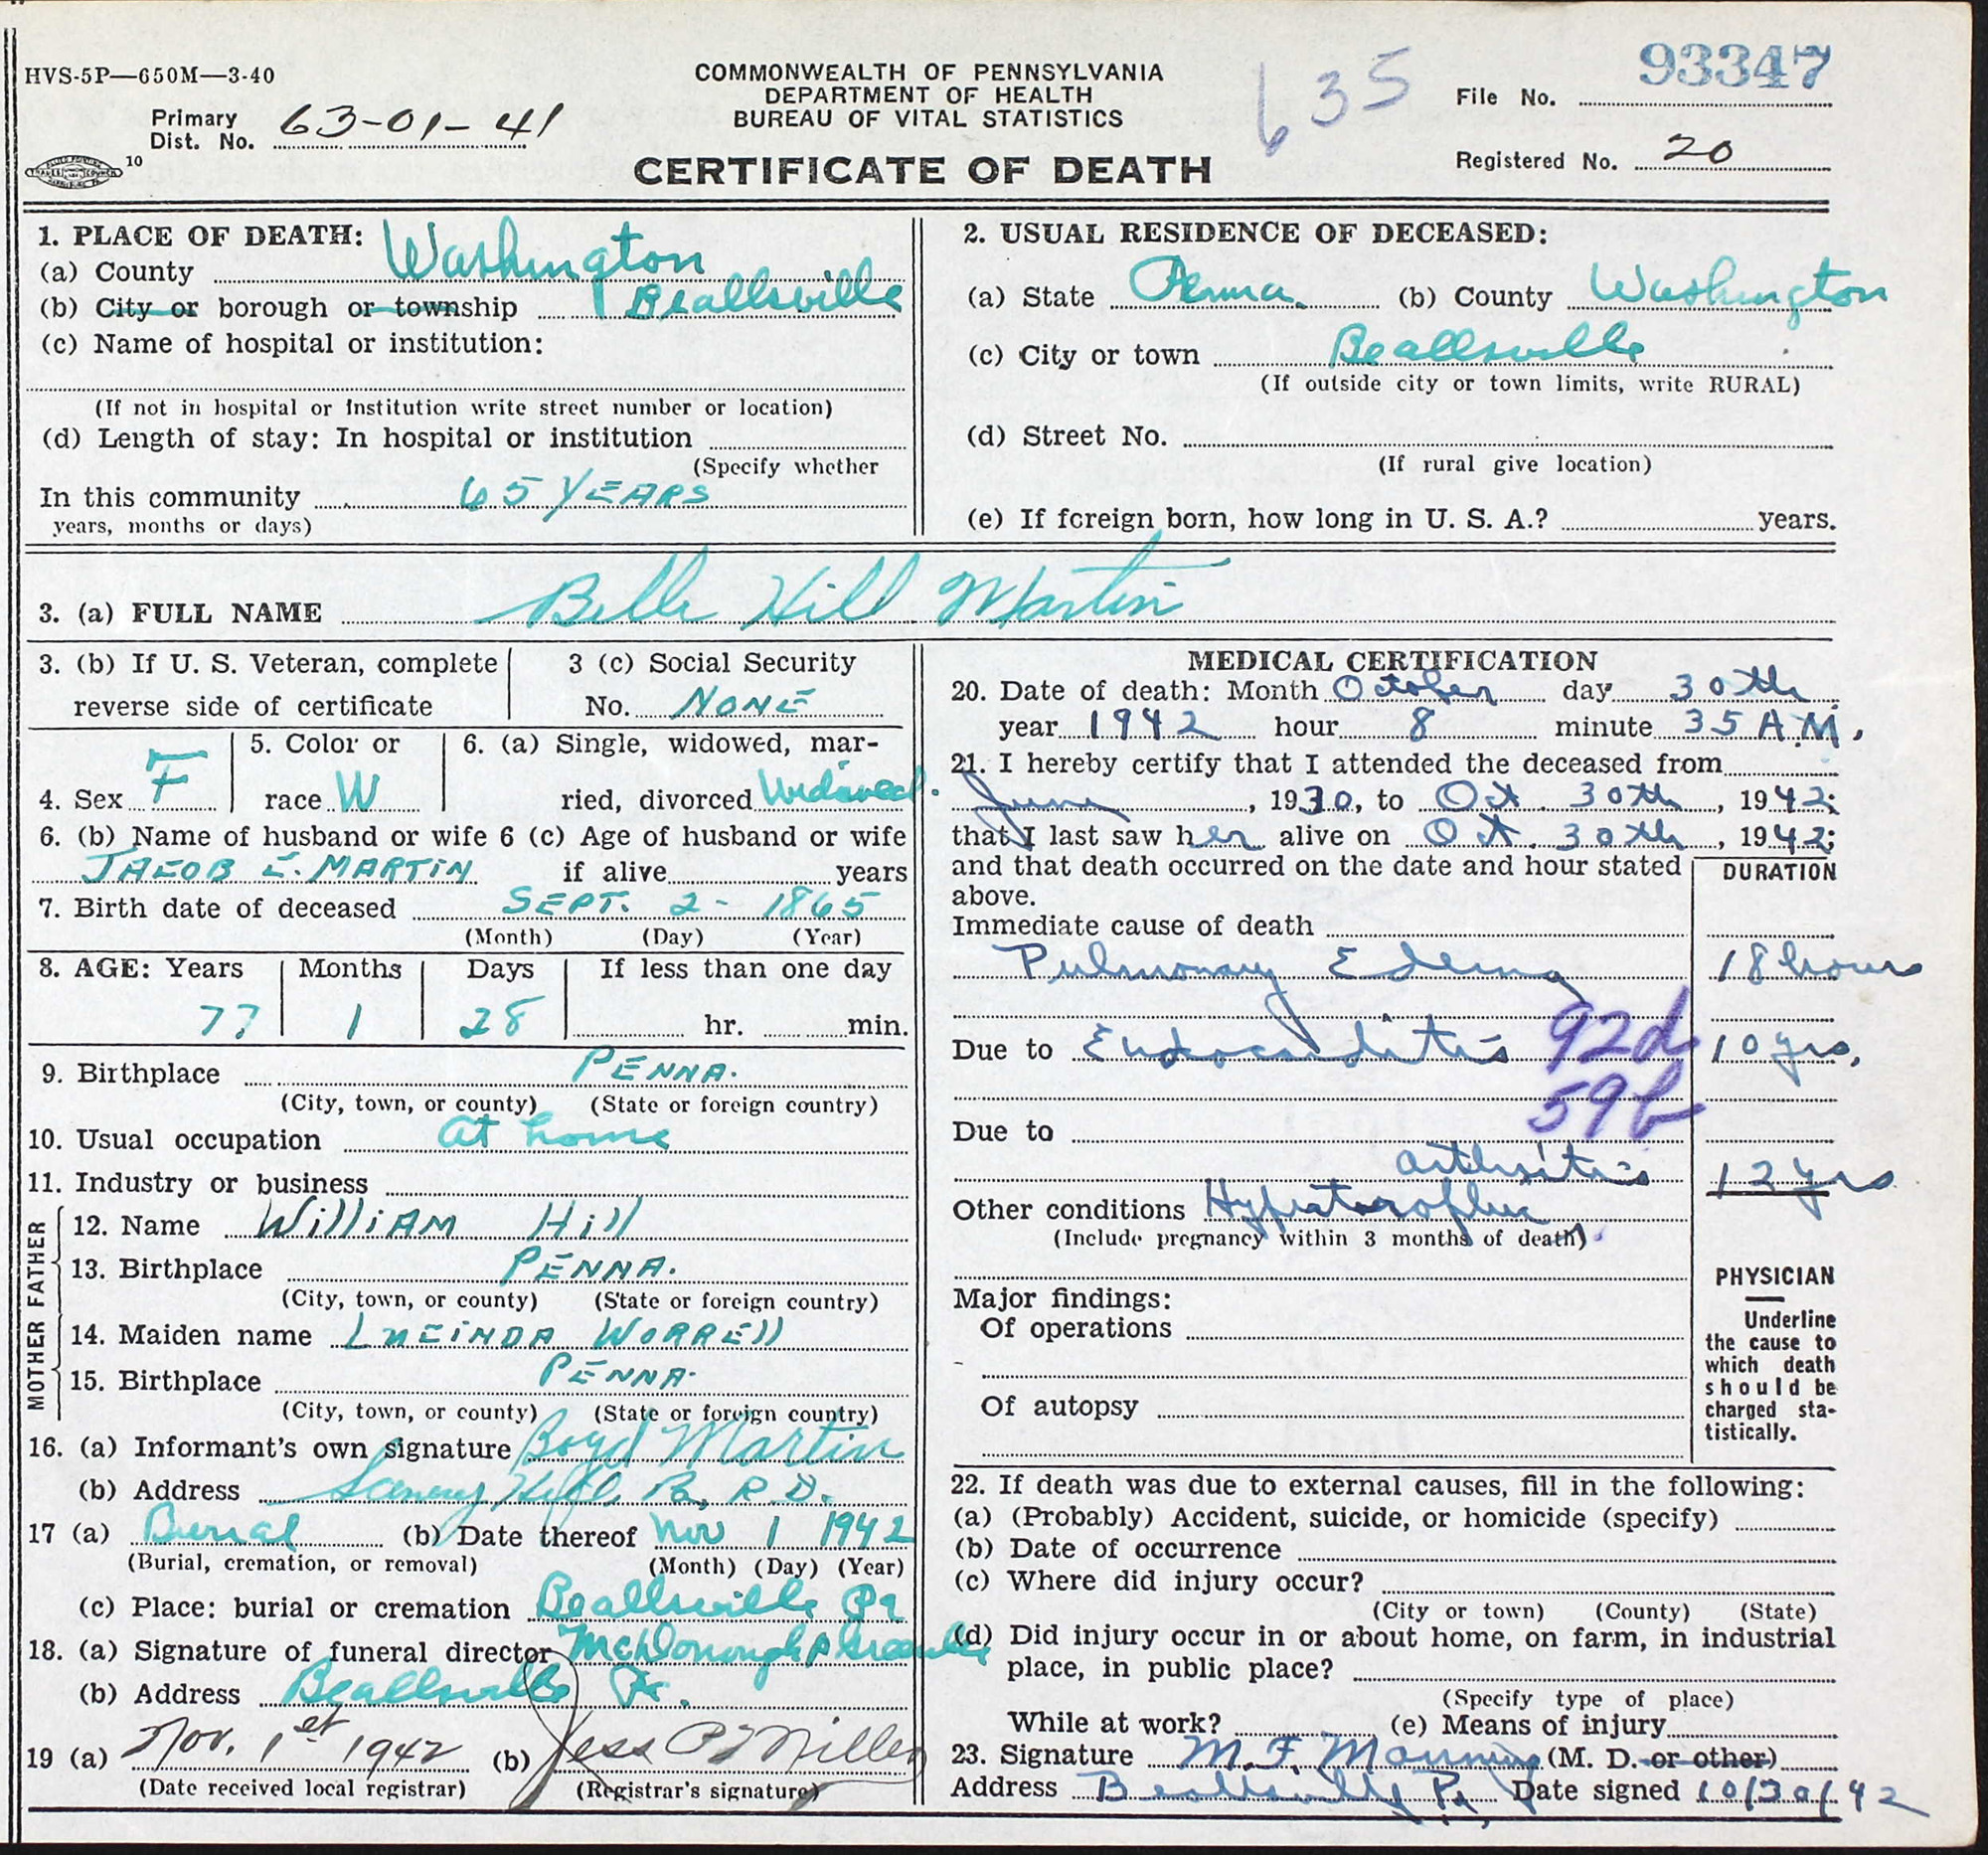 HVS-5P—650M—3-40
COMMONWEALTH OF PENNSYLVANIA
DEPARTMENT OF HEALTH
BUREAU OF VITAL STATISTICS
CERTIFICATE OF DEATH
635
93347
File No.
Primary
Dist. No. 63-01-41
10
Registered No. 20
1. PLACE OF DEATH:
(a) County Washington
(b) City or borough or township Beallsville
(c) Name of hospital or institution:
(If not in hospital or Institution write street number or location)
(d) Length of stay: In hospital or institution
(Specify whether
In this community 65 YEARS
years, months or days)
2. USUAL RESIDENCE OF DECEASED:
(a) State Penna. (b) County Washington
(c) City or town Beallsville
(If outside city or town limits, write RURAL)
(d) Street No.
(If rural give location)
(e) If foreign born, how long in U. S. A.? years.
3. (a) FULL NAME Belle Hill Martin
3. (b) If U. S. Veteran, complete
reverse side of certificate
3 (c) Social Security
No. NONE
4. Sex F
5. Color or
race W
6. (a) Single, widowed, mar-
ried, divorced Widowed.
6. (b) Name of husband or wife 6 (c) Age of husband or wife
JACOB E. MARTIN if alive years
7. Birth date of deceased SEPT. 2 - 1865
(Month) (Day) (Year)
8. AGE: Years Months Days If less than one day
77 1 28 hr. min.
9. Birthplace PENNA.
(City, town, or county) (State or foreign country)
10. Usual occupation at home
11. Industry or business
FATHER
12. Name William Hill
13. Birthplace PENNA.
(City, town, or county) (State or foreign country)
MOTHER
14. Maiden name LUCINDA WORRELL
15. Birthplace PENNA.
(City, town, or county) (State or foreign country)
16. (a) Informant's own signature Boyd Martin
(b) Address Scenery Hill, Pa, R D.
17 (a) Burial (b) Date thereof Nov 1 1942
(Burial, cremation, or removal) (Month) (Day) (Year)
(c) Place: burial or cremation Beallsville Pa
18. (a) Signature of funeral director
(b) Address Beallsville Pa.
19 (a) Nov. 1st 1942 (b) Jess Miller
(Date received local registrar) (Registrar's signature)
MEDICAL CERTIFICATION
20. Date of death: Month October day 30th
year 1942 hour 8 minute 35 A.M.
21. I hereby certify that I attended the deceased from
June, 1930, to Oct. 30th, 1942;
that I last saw her alive on Oct. 30th, 1942;
and that death occurred on the date and hour stated
above.
DURATION
Immediate cause of death
Pulmonary Edema 18 hours
Due to Endocarditis 92d 10 yrs.
59b
Due to
arthritis 12 yrs
Other conditions Hypertrophic
(Include pregnancy within 3 months of death)
Major findings:
Of operations
Of autopsy
PHYSICIAN
Underline
the cause to
which death
should be
charged sta-
tistically.
22. If death was due to external causes, fill in the following:
(a) (Probably) Accident, suicide, or homicide (specify)
(b) Date of occurrence
(c) Where did injury occur?
(City or town) (County) (State)
(d) Did injury occur in or about home, on farm, in industrial
place, in public place?
(Specify type of place)
While at work? (e) Means of injury
23. Signature M. F. Manning (M. D. or other)
Address Beallsville Pa, Date signed 10/30/42